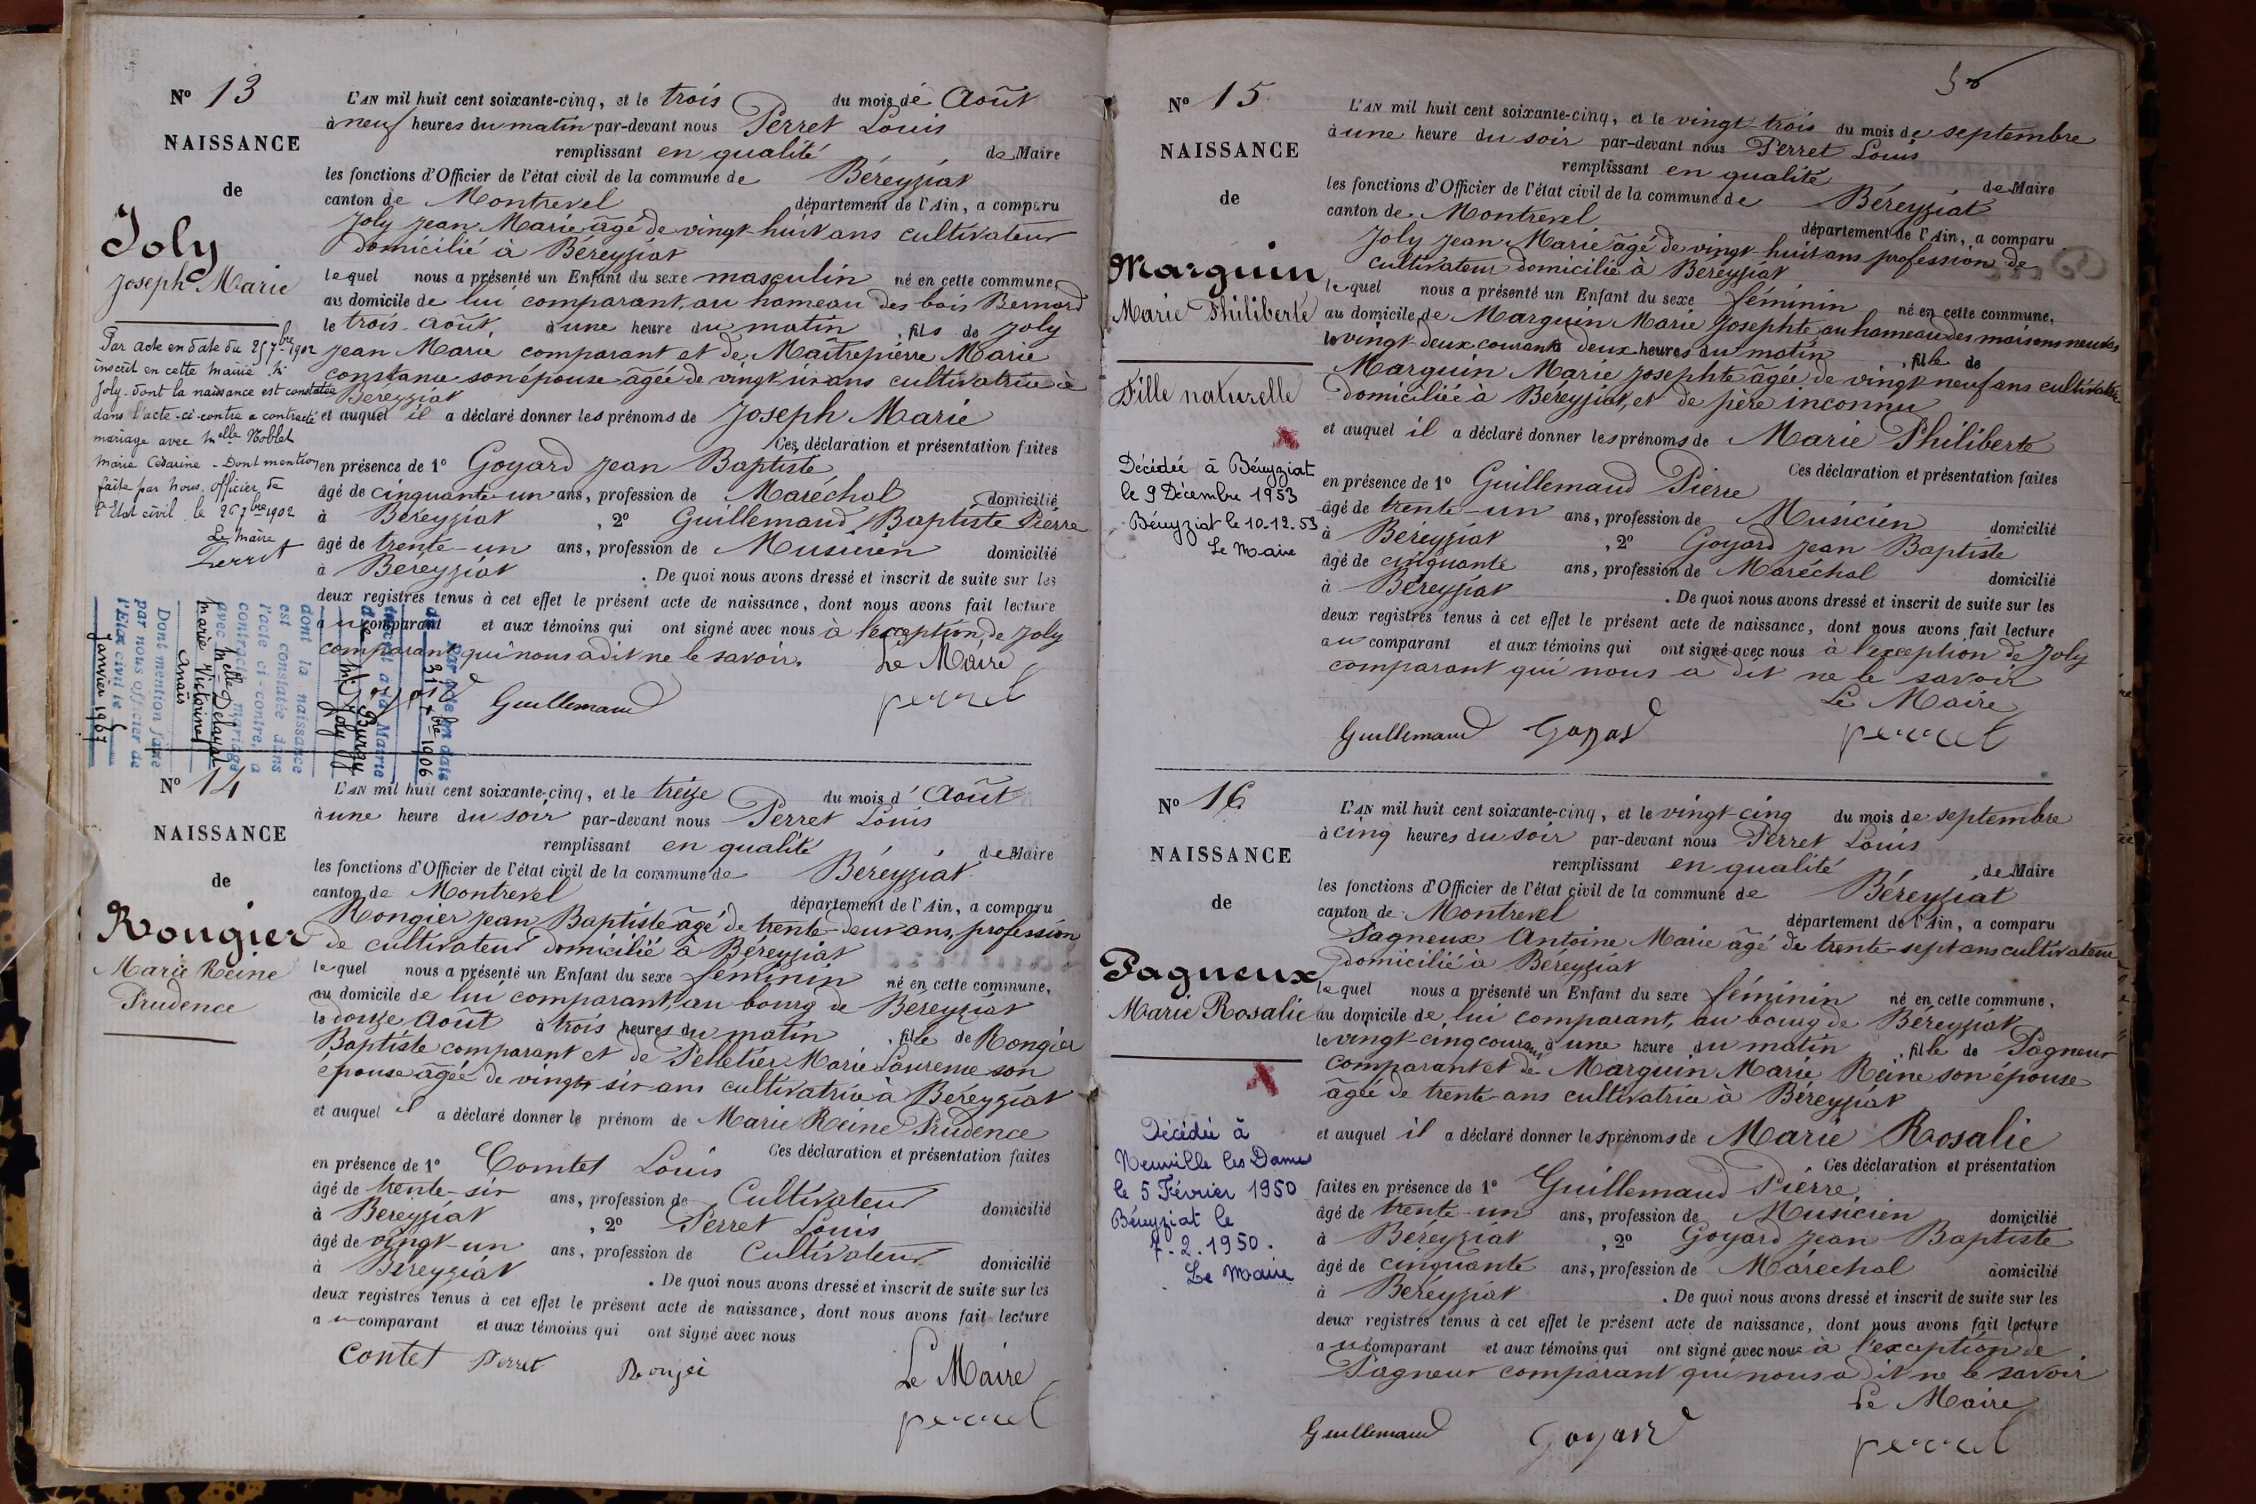 Nº 13
NAISSANCE
de
Joly
Joseph Marie
Par acte en date du 25 7bre 1902
inscrit en cette mairie Mr
Joly dont la naissance est constatée
dans l'acte ci-contre a contracté
mariage avec Melle Noblet
Marie Césarine. Dont mention
faite par nous, officier de
l'Etat civil le 26 7bre 1902
Le Maire
Perret
L'AN mil huit cent soixante-cinq, et le trois du mois de Août
à neuf heures du matin par-devant nous Perret Louis
remplissant en qualité de Maire
les fonctions d'Officier de l'état civil de la commune de Béreyziat
canton de Montrevel département de l'Ain, a comparu
Joly Jean Marie âgé de vingt-huit ans cultivateur
domicilié à Béreyziat
lequel nous a présenté un Enfant du sexe masculin né en cette commune,
au domicile de lui comparant, au hameau des bois Bernard
le trois Août, à une heure du matin, fils de Joly
Jean Marie comparant et de Maîtrepierre Marie
Constance son épouse âgée de vingt-six ans cultivatrice à
Béreyziat
et auquel il a déclaré donner les prénoms de Joseph Marie
Ces déclaration et présentation faites
en présence de 1º Goyard Jean Baptiste
âgé de cinquante-un ans, profession de Maréchal domicilié
à Béreyziat, 2º Guillemaud Baptiste Pierre
âgé de trente-un ans, profession de Musicien domicilié
à Béreyziat. De quoi nous avons dressé et inscrit de suite sur les
deux registres tenus à cet effet le présent acte de naissance, dont nous avons fait lecture
au comparant et aux témoins qui ont signé avec nous à l'exception de Joly
comparant qui nous a dit ne le savoir. Le Maire
Goyard Guillemaud perret
Par acte en date
du 31 xbre 1906
inscrit à la Mairie
de Burgy
Mr Joly
dont la naissance
est constatée dans
l'acte ci-contre, a
contracté mariage
avec Melle Delaye
Marie Victorine
Anaïs
Dont mention faite
par nous officier de
l'Etat civil le 5
Janvier 1907
Nº 14
NAISSANCE
de
Rongier
Marie Reine
Prudence
L'AN mil huit cent soixante-cinq, et le treize du mois d'Août
à une heure du soir par-devant nous Perret Louis
remplissant en qualité de Maire
les fonctions d'Officier de l'état civil de la commune de Béreyziat
canton de Montrevel département de l'Ain, a comparu
Rongier Jean Baptiste âgé de trente-deux ans, profession
de cultivateur domicilié à Béreyziat
lequel nous a présenté un Enfant du sexe féminin né en cette commune,
au domicile de lui comparant, au bourg de Béreyziat
le douze Août à trois heures du matin, fille de Rongier
Baptiste comparant et de Peletier Marie Laurence son
épouse âgée de vingt-six ans cultivatrice à Béreyziat
et auquel il a déclaré donner le prénom de Marie Reine Prudence
Ces déclaration et présentation faites
en présence de 1º Comtet Louis
âgé de trente-six ans, profession de Cultivateur domicilié
à Béreyziat, 2º Perret Louis
âgé de vingt-un ans, profession de Cultivateur domicilié
à Béreyziat. De quoi nous avons dressé et inscrit de suite sur les
deux registres tenus à cet effet le présent acte de naissance, dont nous avons fait lecture
au comparant et aux témoins qui ont signé avec nous
Contet Perret Le Maire
perret
50
Nº 15
NAISSANCE
de
Marguin
Marie Philiberte
Fille naturelle
Décédée à Béreyziat
le 9 Décembre 1953
Béreyziat le 10-12-53
Le Maire
L'AN mil huit cent soixante-cinq, et le vingt-trois du mois de septembre
à une heure du soir par-devant nous Perret Louis
remplissant en qualité de Maire
les fonctions d'Officier de l'état civil de la commune de Béreyziat
canton de Montrevel département de l'Ain, a comparu
Joly Jean Marie âgé de vingt-huit ans profession de
cultivateur domicilié à Béreyziat
lequel nous a présenté un Enfant du sexe féminin né en cette commune,
au domicile de Marguin Marie Josephte au hameau des maisons neuves
le vingt-deux courant à deux heures du matin, fille de
Marguin Marie Josephte âgée de vingt-neuf ans cultivatrice
domiciliée à Béreyziat, et de père inconnu
et auquel il a déclaré donner les prénoms de Marie Philiberte
Ces déclaration et présentation faites
en présence de 1º Guillemaud Pierre
âgé de trente-un ans, profession de Musicien domicilié
à Béreyziat, 2º Goyard Jean Baptiste
âgé de cinquante ans, profession de Maréchal domicilié
à Béreyziat. De quoi nous avons dressé et inscrit de suite sur les
deux registres tenus à cet effet le présent acte de naissance, dont nous avons fait lecture
au comparant et aux témoins qui ont signé avec nous à l'exception de Joly
comparant qui nous a dit ne le savoir
Le Maire
Guillemaud Goyard perret
Nº 16
NAISSANCE
de
Pagneux
Marie Rosalie
Décédée à
Neuville les Dames
le 5 Février 1950
Béreyziat le
7.2.1950.
Le Maire
L'AN mil huit cent soixante-cinq, et le vingt-cinq du mois de septembre
à cinq heures du soir par-devant nous Perret Louis
remplissant en qualité de Maire
les fonctions d'Officier de l'état civil de la commune de Béreyziat
canton de Montrevel département de l'Ain, a comparu
Pagneux Antoine Marie âgé de trente-sept ans cultivateur
domicilié à Béreyziat
lequel nous a présenté un Enfant du sexe féminin né en cette commune,
au domicile de lui comparant, au bourg de Béreyziat
le vingt-cinq courant à une heure du matin, fille de Pagneux
comparant et de Marguin Marie Reine son épouse
âgée de trente ans cultivatrice à Béreyziat
et auquel il a déclaré donner les prénoms de Marie Rosalie
Ces déclaration et présentation
faites en présence de 1º Guillemaud Pierre
âgé de trente-un ans, profession de Musicien domicilié
à Béreyziat, 2º Goyard Jean Baptiste
âgé de cinquante ans, profession de Maréchal domicilié
à Béreyziat. De quoi nous avons dressé et inscrit de suite sur les
deux registres tenus à cet effet le présent acte de naissance, dont nous avons fait lecture
au comparant et aux témoins qui ont signé avec nous à l'exception de
Pagneux comparant qui nous a dit ne le savoir
Le Maire
Guillemaud Goyard perret